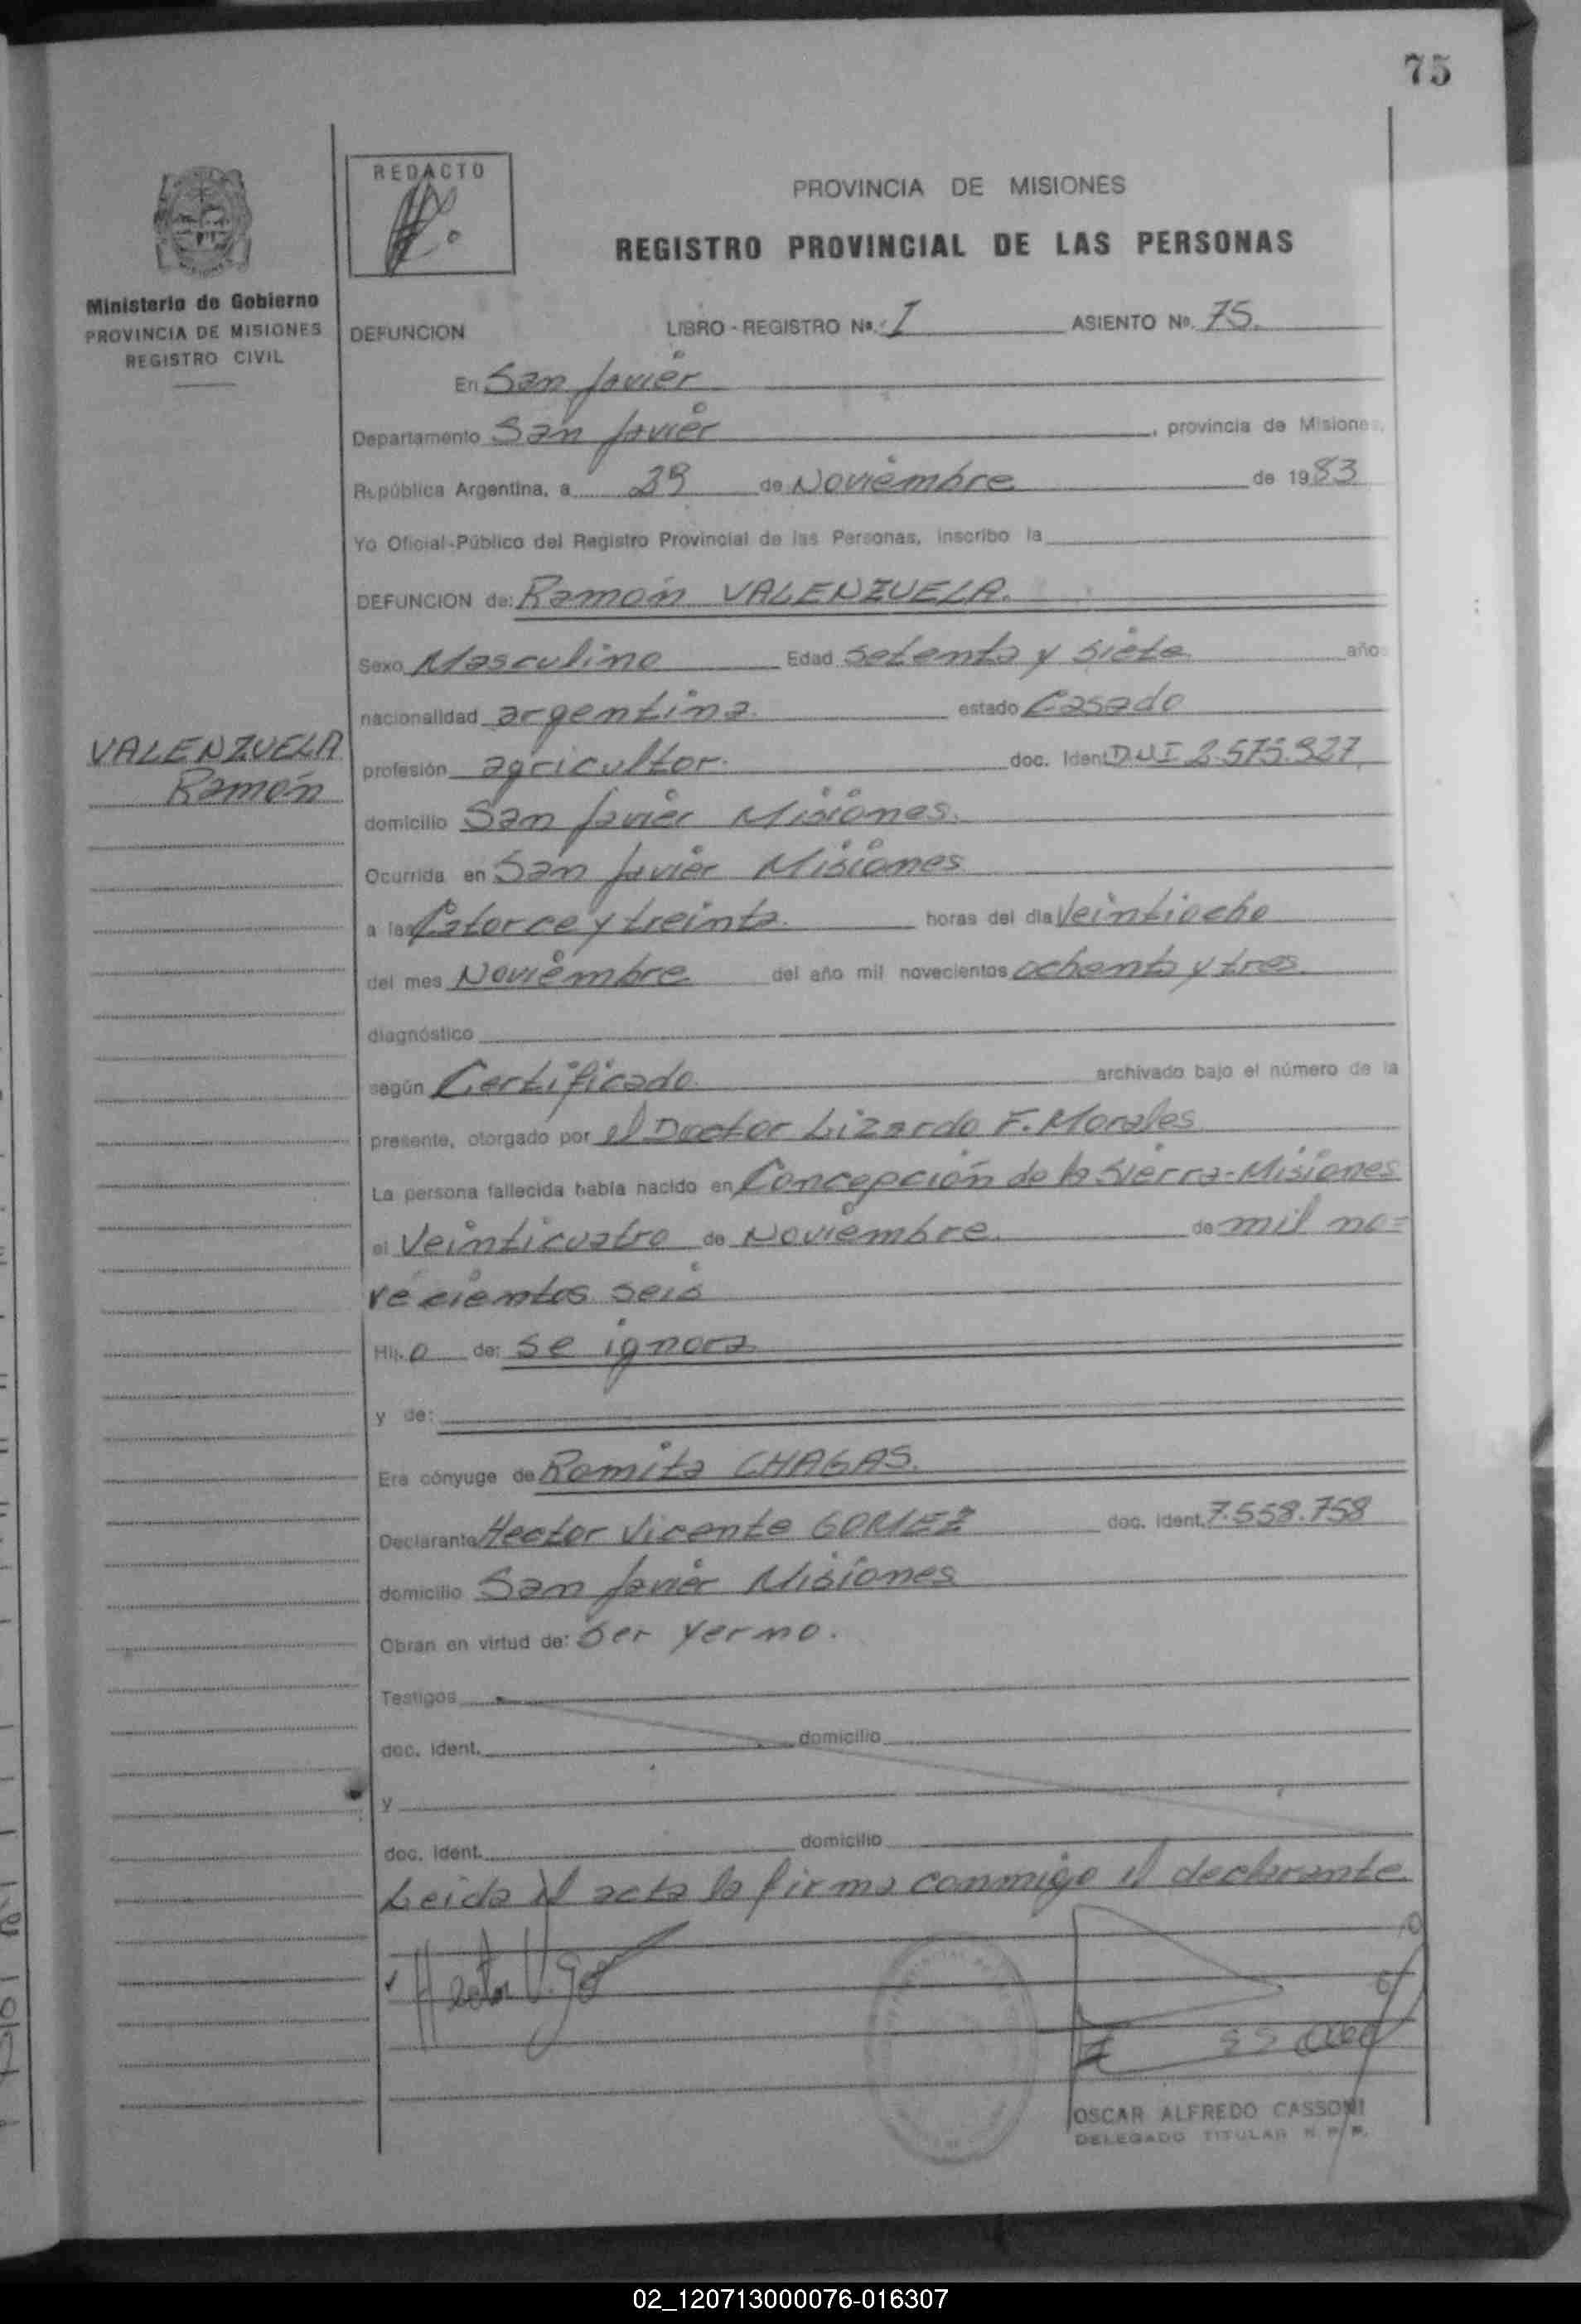 75
REDACTO
PROVINCIA DE MISIONES
REGISTRO PROVINCIAL DE LAS PERSONAS
Ministerio de Gobierno
PROVINCIA DE MISIONES
REGISTRO CIVIL
DEFUNCION LIBRO - REGISTRO Nº. I ASIENTO Nº. 75.
En San Javier
Departamento San Javier, provincia de Misiones,
República Argentina, a 29 de Noviembre de 1983
Yo Oficial-Público del Registro Provincial de las Personas, inscribo la
DEFUNCION de: Ramón VALENZUELA.
Sexo Masculino Edad setenta y siete años
nacionalidad argentina. estado Casado
VALENZUELA
Ramón
profesión agricultor. doc. Ident. D.N.I 2.575.927
domicilio San Javier Misiones.
Ocurrida en San Javier Misiones
a las Catorce y treinta. horas del día Veintiocho
del mes Noviembre del año mil novecientos ochenta y tres
diagnóstico
según Certificado. archivado bajo el número de la
presente, otorgado por el Doctor Lizardo F. Morales
La persona fallecida había nacido en Concepción de la Sierra-Misiones
el Veinticuatro de Noviembre. de mil no=
vecientos seis
Hij. o de: se ignora
y de:
Era cónyuge de Romita CHAGAS.
Declarante Hector Vicente GOMEZ doc. ident. 7.558.758
domicilio San Javier Misiones
Obran en virtud de: Ser yerno.
Testigos
doc. ident. domicilio
y
doc. ident. domicilio
Leida el acta la firma conmigo el declarante
Hector V. Go
OSCAR ALFREDO CASSONI
DELEGADO TITULAR R. P. P.
02_120713000076-016307